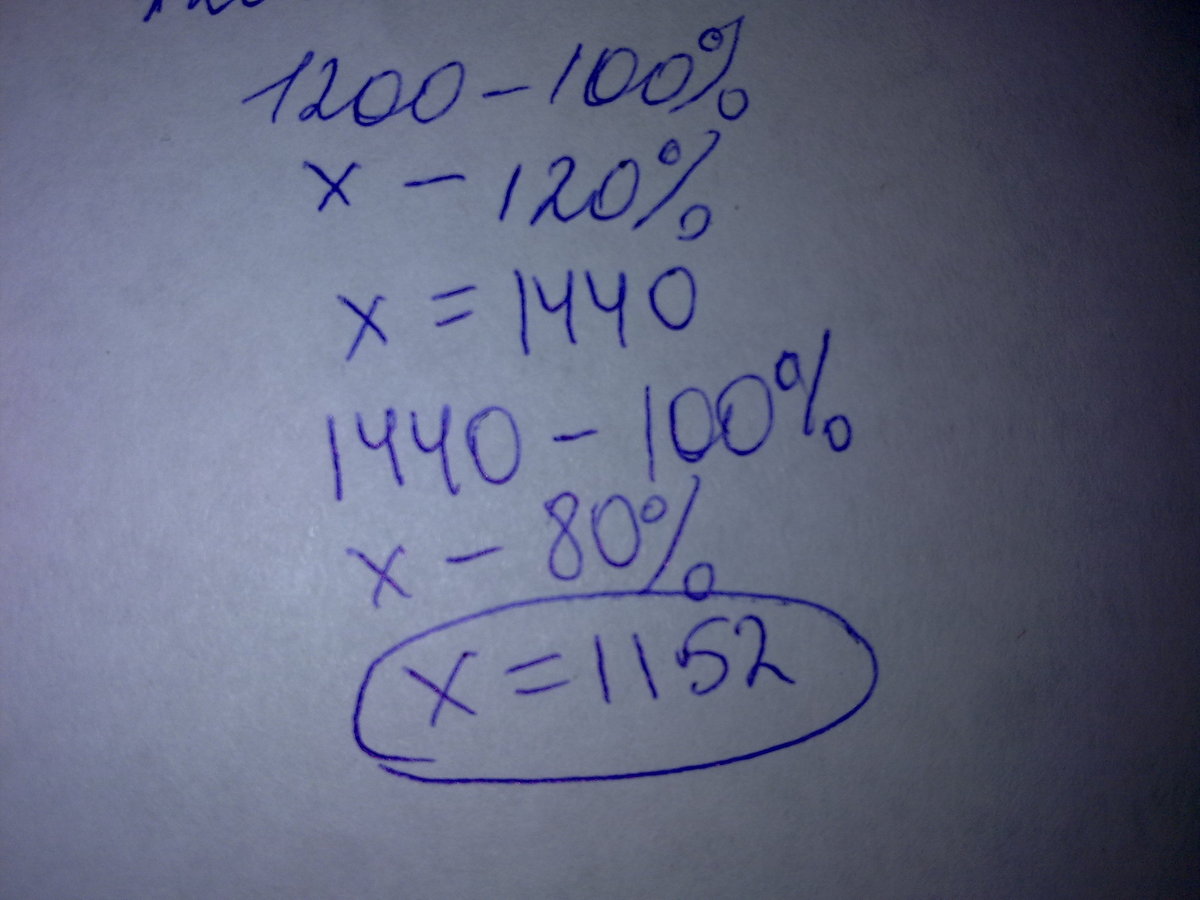 1200 - 100%
x - 120%
x = 1440
1440 - 100%
x - 80%
x = 1152